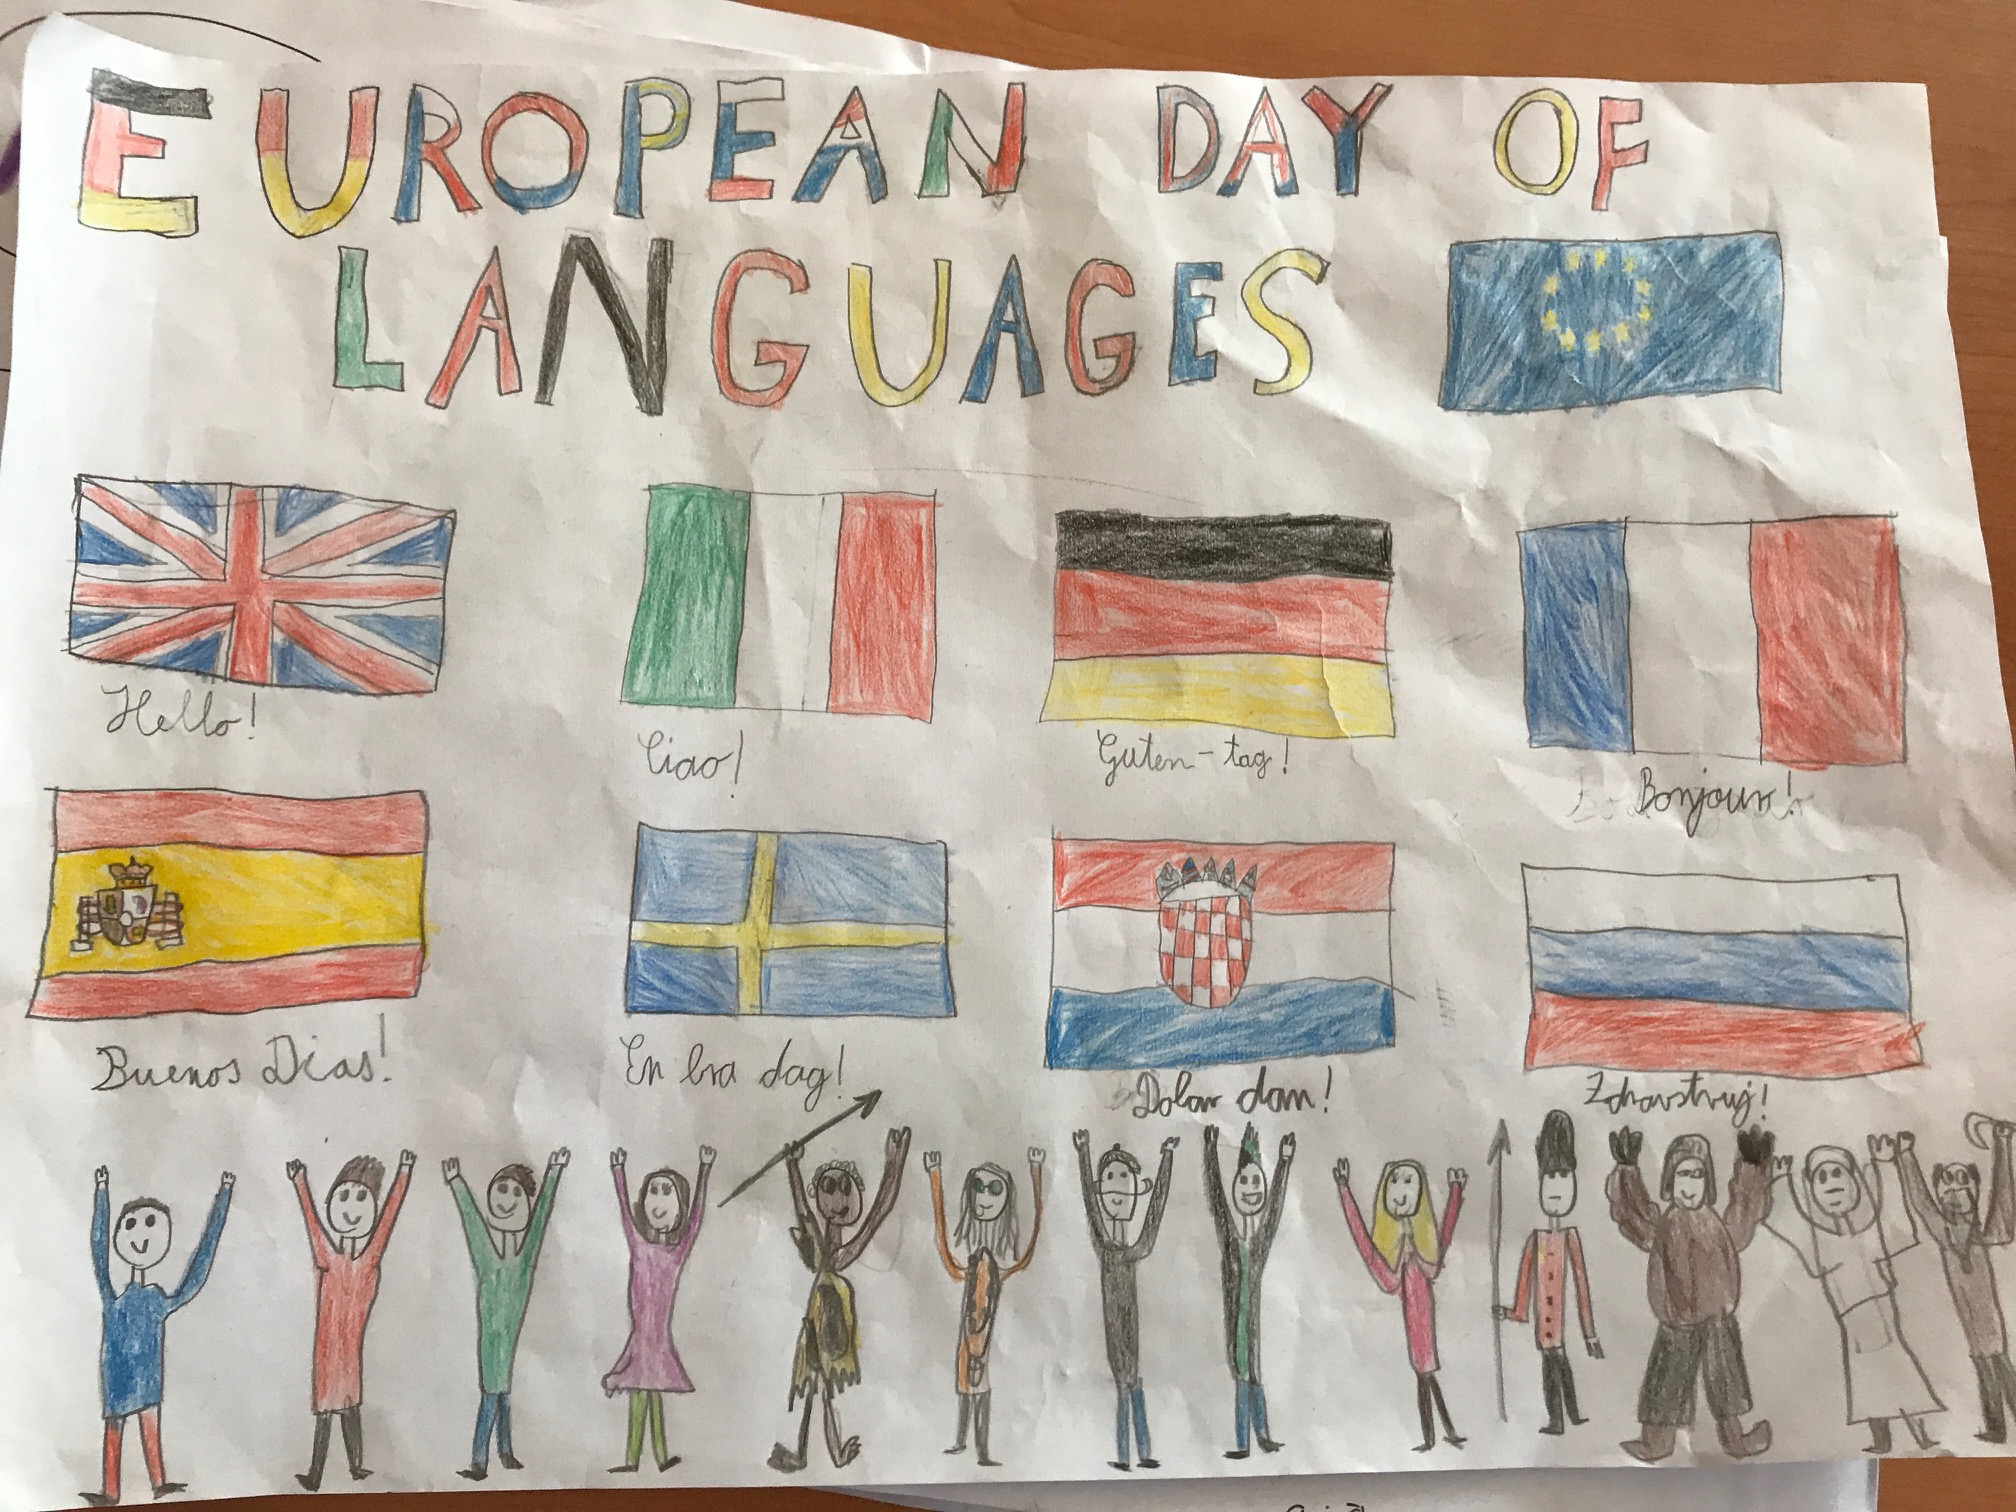 EUROPEAN DAY OF
LANGUAGES
Hello!
Ciao!
Guten-tag!
Bonjour!
Buenos Dias!
En bra dag!
Dobar dan!
Zdravstvuj!